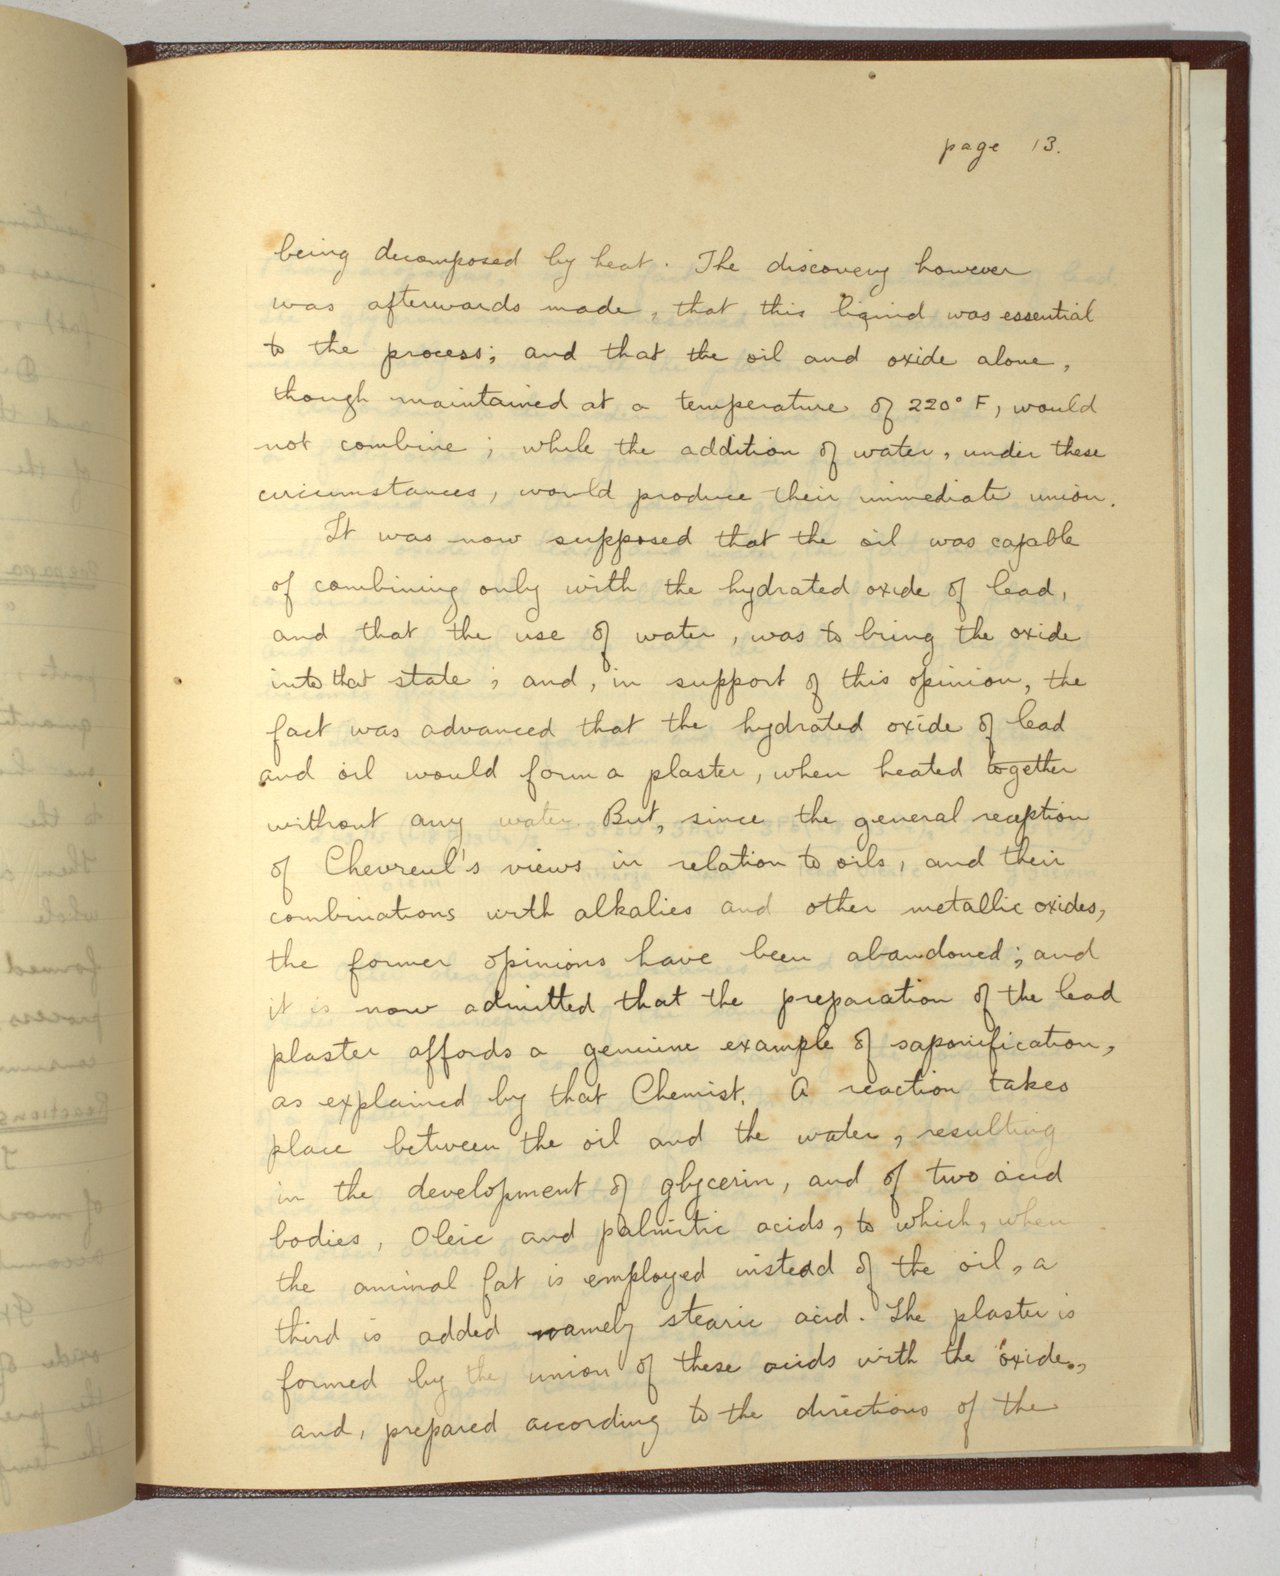 page 13.
being decomposed by heat. The discovery however
was afterwards made, that this liquid was essential
to the process; and that the oil and oxide alone,
though maintained at a temperature of 220° F, would
not combine; while the addition of water, under these
circumstances, would produce their immediate union.
It was now supposed that the oil was capable
of combining only with the hydrated oxide of lead,
and that the use of water, was to bring the oxide
into that state; and, in support of this opinion, the
fact was advanced that the hydrated oxide of lead
and oil would form a plaster, when heated together
without any water. But, since the general reception
of Chevreul's views in relation to oils, and their
combinations with alkalies and other metallic oxides,
the former opinions have been abandoned; and
it is now admitted that the preparation of the lead
plaster affords a genuine example of saponification,
as explained by that Chemist. A reaction takes
place between the oil and the water, resulting
in the development of glycerin, and of two acid
bodies, Oleic and palmitic acids, to which, when
the animal fat is employed instead of the oil, a
third is added namely stearic acid. The plaster is
formed by the union of these acids with the oxide,
and, prepared according to the directions of the